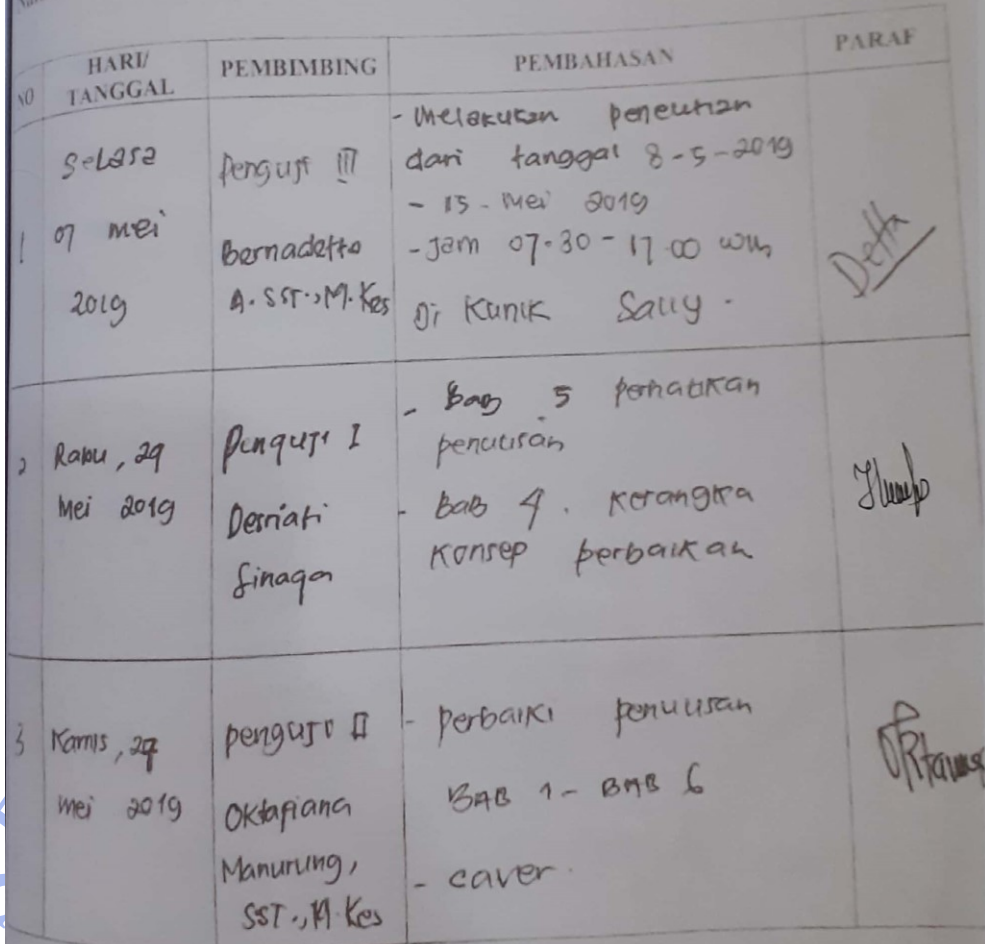 NO HARI/ TANGGAL PEMBIMBING PEMBAHASAN PARAF
1
Selasa
07 mei
2019
Penguji III
Bernadetta
A. SST., M.Kes
- Melakukan penelitian
dari tanggal 8-5-2019
- 15 - Mei 2019
- Jam 07.30 - 17.00 wib
Di Klinik Sally.
Detta
2
Rabu, 29
Mei 2019
Penguji I
Desriati
Sinaga
- Bab 5 perhatikan
penulisan
- Bab 4. Kerangka
Konsep perbaikan
3
Kamis, 27
Mei 2019
Penguji II
Oktafiana
Manurung,
SST., M.Kes
- perbaiki penulisan
BAB 1 - BAB 6
- caver.